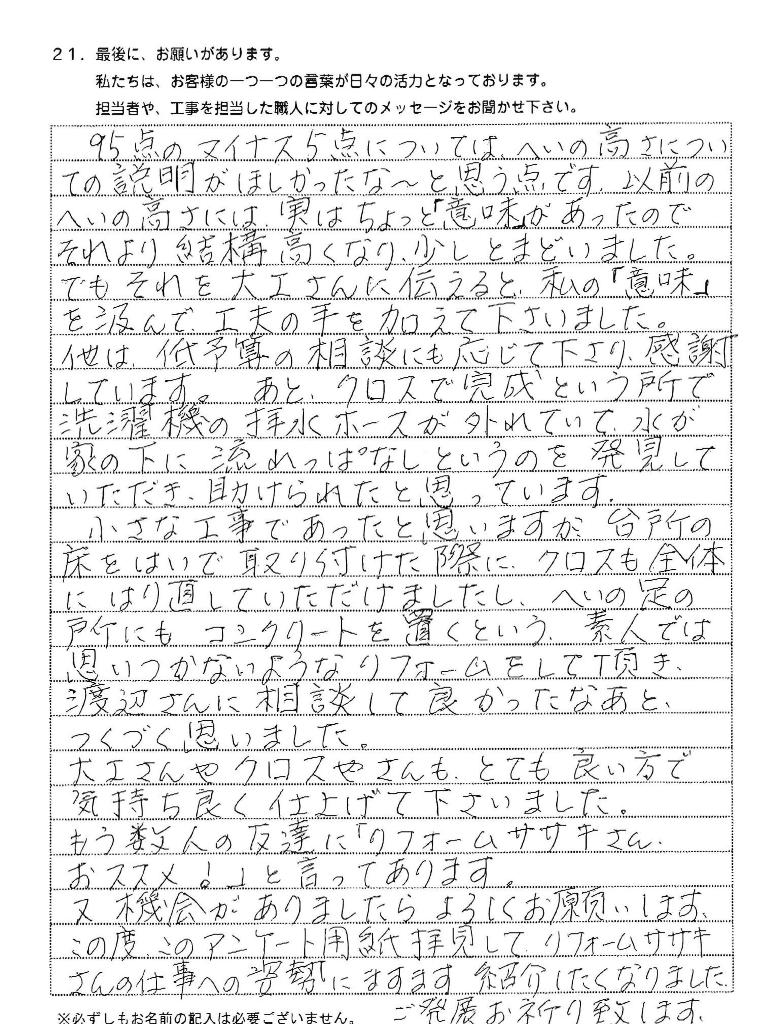 21. 最後に、お願いがあります。
私たちは、お客様の一つ一つの言葉が日々の活力となっております。
担当者や、工事を担当した職人に対してのメッセージをお聞かせ下さい。
95点のマイナス5点については、へいの高さについ
ての説明がほしかったな〜と思う点です。以前の
へいの高さには、実はちょっと「意味」があったので
それより結構高くなり、少しとまどいました。
でもそれを大工さんに伝えると、私の「意味」
を汲んで、工夫の手を加えて下さいました。
他は、低予算の相談にも応じて下さり、感謝
しています。 あと、クロスで完成という所で
洗濯機の排水ホースが外れていて、水が
家の下に流れっぱなしというのを発見して
いただき、助けられたと思っています。
小さな工事であったと思いますが、台所の
床をはいで取り付けた際に、クロスも全体
にはり直していただけましたし、へいの足の
所にもコンクリートを置くという、素人では
思いつかないようなリフォームをして頂き、
渡辺さんに相談して良かったなあと、
つくづく思いました。
大工さんやクロスやさんも、とても良い方で
気持ち良く仕上げて下さいました。
もう数人の友達に「リフォームササキさん、
おススメ!」と言ってあります。
又機会がありましたらよろしくお願いします。
この度、このアンケート用紙拝見して、リフォームササキ
さんの仕事への姿勢にますます紹介したくなりました。
※必ずしもお名前の記入は必要ございません。 ご発展お祈り致します。